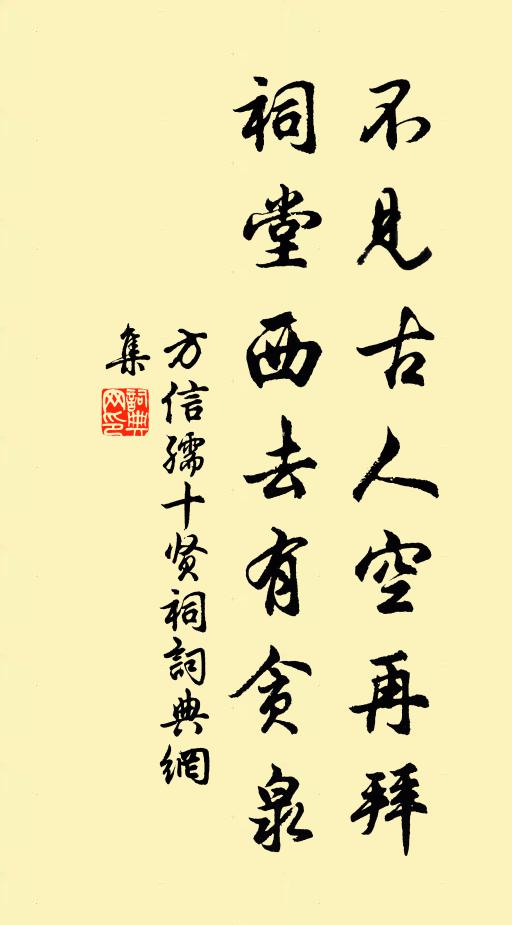 不见古人空再拜
祠堂西去有贪泉
方信孺十贤祠詞典網
集
詞典
网印